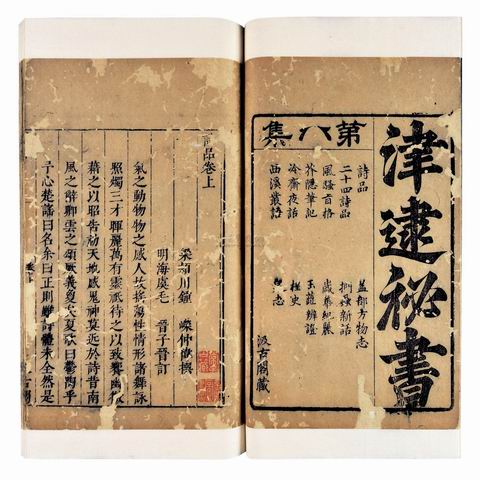 津逮秘書
第八集
詩品
二十四詩品
風騷旨格
芥隱筆記
冷齋夜話
西溪叢語
益部方物志
捫蝨新話
歲華紀麗
玉蕊辨證
桯史
志
汲古閣藏
詩品卷上
梁潁川鍾 嶸仲偉撰
明海虞毛 晉子晉訂
氣之動物物之感人故搖蕩性情形諸舞詠
照燭三才暉麗萬有靈祇待之以致饗幽微
藉之以昭告動天地感鬼神莫近於詩昔南
風之辭卿雲之頌厥義夐矣夏歌曰鬱陶乎
予心楚謠曰名余曰正則雖詩體未全然是